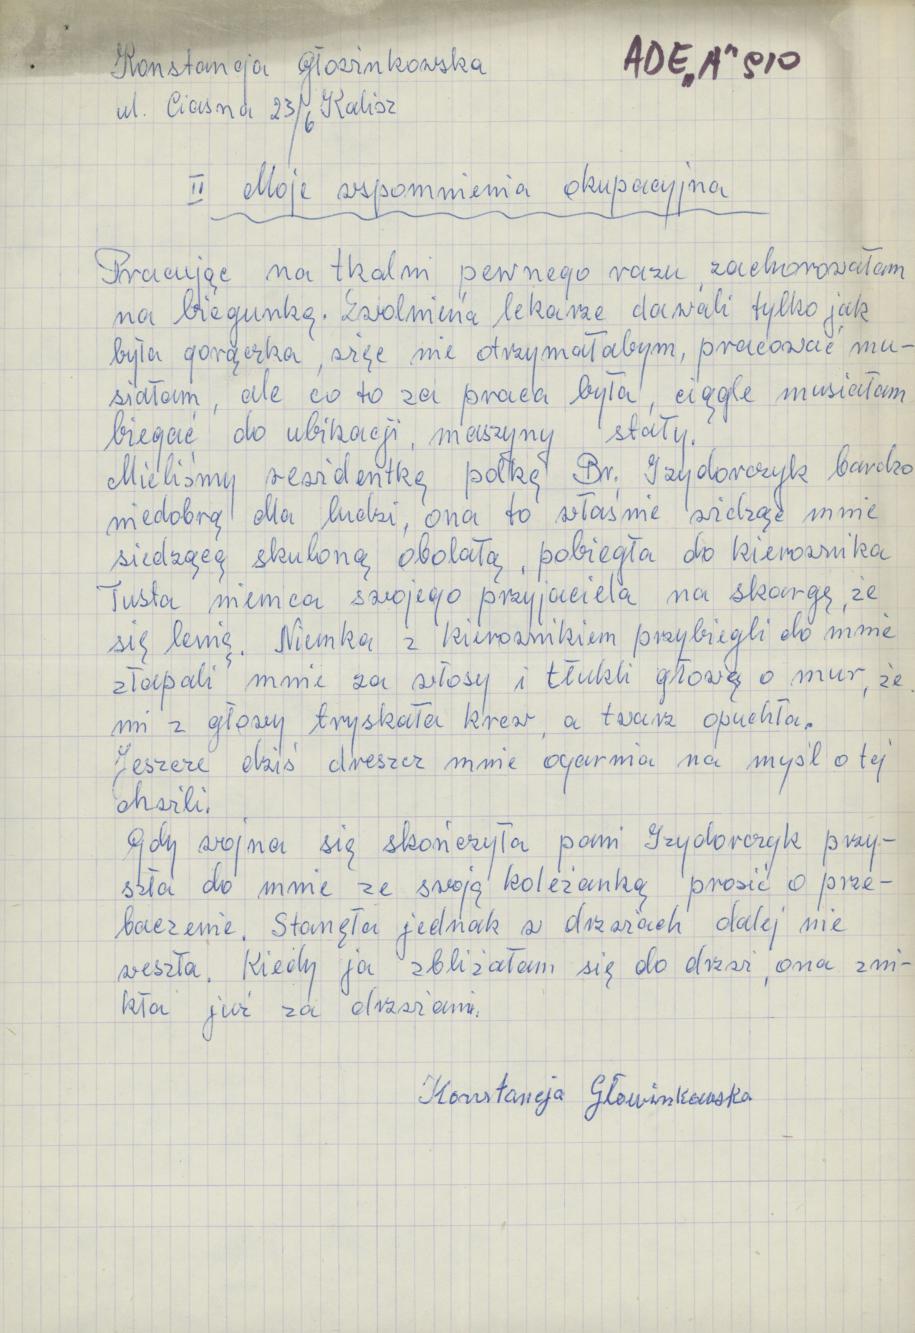 Konstancja Głowinkowska
ADE „A” 910
ul. Ciasna 23/6 Kalisz
II Moje wspomnienia okupacyjna
Pracując na tkalni pewnego razu zachorowałam
na biegunką. Zwolnienia lekarze dawali tylko jak
była gorączka, więc nie otrzymałabym, pracować mu-
siałam, ale co to za praca była, ciągle musiałam
biegać do ubikacji, maszyny stały.
Mieliśmy rezidentką polką Br. Izydorczyk bardzo
niedobrą dla ludzi, ona to właśnie widząc mnie
siedzącą skuloną obolałą, pobiegła do kierownika
Tusta niemca swojego przyjaciela na skargę, że
się lenię. Niemka z kierownikiem przybiegli do mnie
złapali mnie za włosy i tłukli głową o mur, że
mi z głowy tryskała krew, a twarz opuchła.
Jeszcze dziś dreszcz mnie ogarnia na myśl o tej
chwili.
Gdy wojna się skończyła pani Izydorczyk przy-
szła do mnie ze swoją koleżanką prosić o prze-
baczenie. Stanęła jednak w drzwiach dalej nie
weszła. Kiedy ja zbliżałam się do drzwi, ona zni-
kła już za drzwiami.
Konstancja Głowinkowska